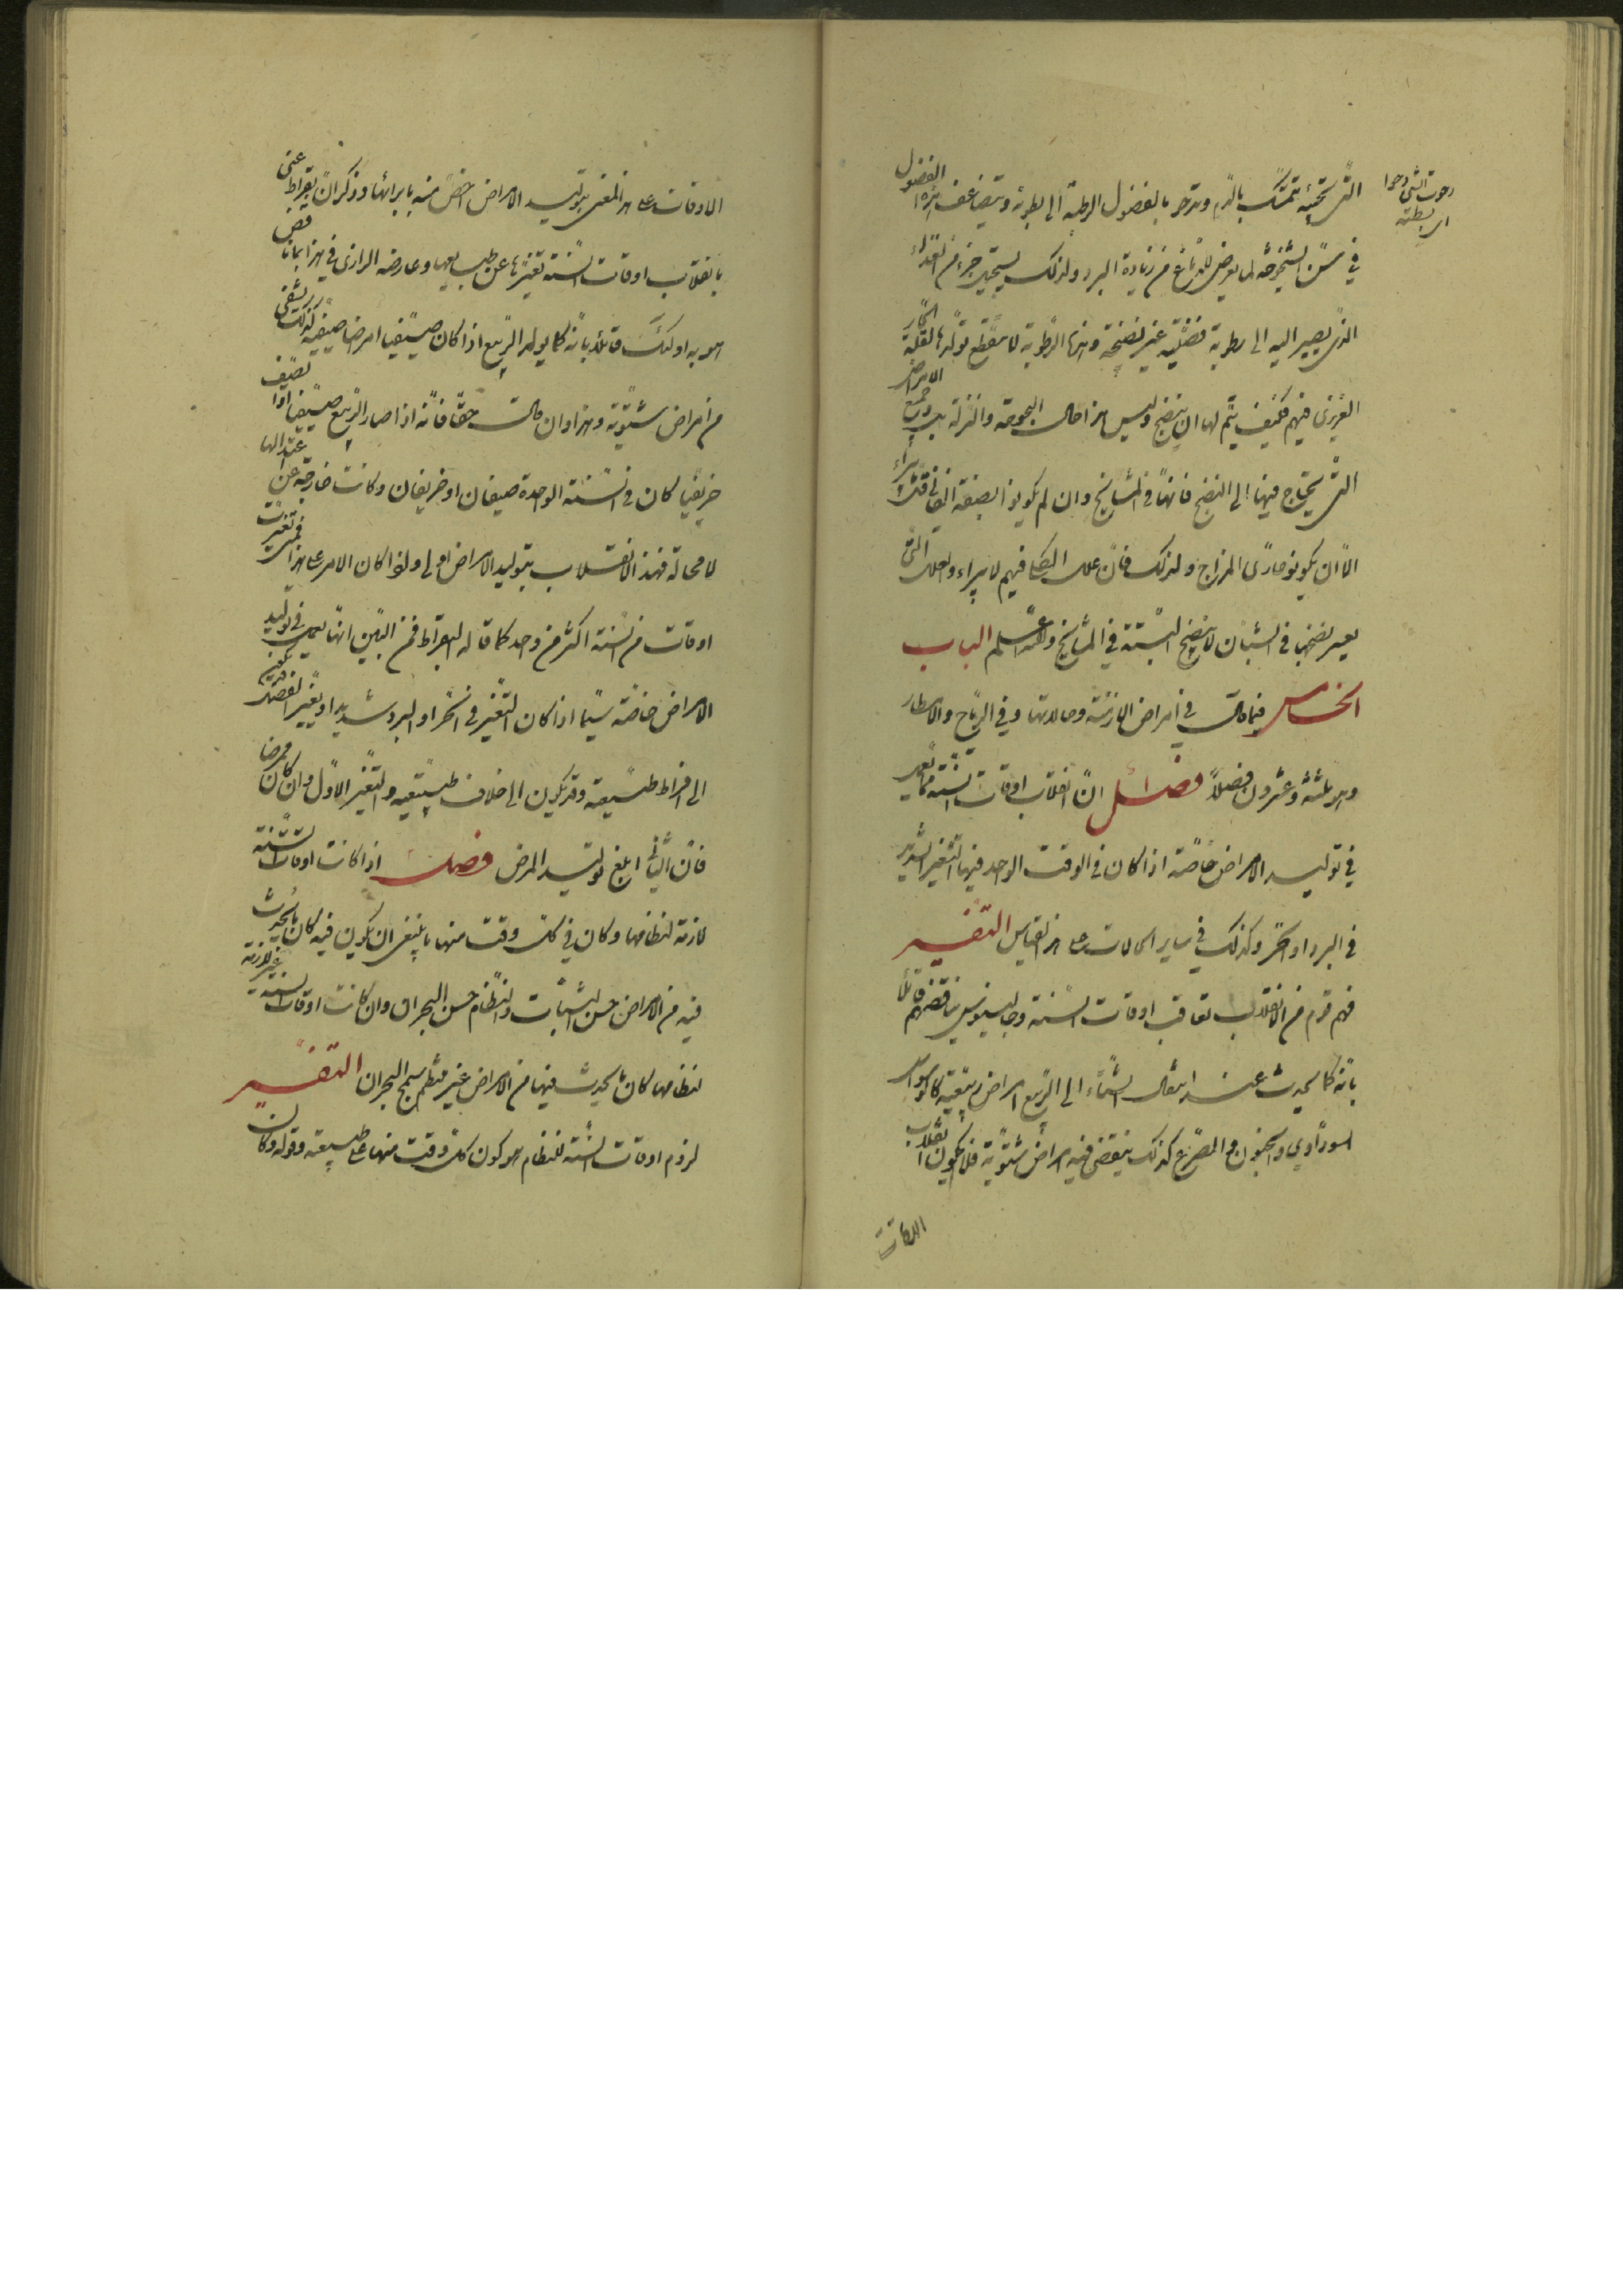 التى تحته يتمسك بالدم وتدحر بالفضول الرطبة الى بطونه ويتضاعف هذه الفضول
في سن الشيخوخة لما يعرض للدماغ من زيادة البرد ولذلك يستحيل جزء من الغذاء
الذى يصير اليه الى رطوبة فضلية غير نضيجة وهذه الرطوبة لا ينقطع تولدها لقلة الحار
الغريزى فيهم فكيف يتم لها ان ينضج وليس هذا حال البحوحة والنزلة بل وجميع الامراض
التى يحتاج فيها الى النضج فانها في المشايخ وان لم يكونوا بصفة الفانى
الا ان يكونوا حارى المزاج ولذلك فان علل الكلى فيهم لا يبراء والعلل التى
يعسر نضجها في الشبان لا ينضج البتة في المشايخ والله اعلم الباب
الخامس فيما قال في امراض الازمنة وحالاتها وفي الرياح والامطار
وهو ثلثة وعشرون فصلاً فصل قال ان انقلاب اوقات السنة مما يعمل
في توليد الامراض خاصة اذا كان في الوقت الواحد فيها التغير الشديد
في البرد او الحر وكذلك في ساير الحالات على هذا القياس التفسير
فهم قوم من الانقلاب تعاقب اوقات السنة وجالينوس يناقضهم قائلاً
بانه كما يحدث عند انتقال الشتاء الى الربيع امراض ربيعية كالوسواس
السوداوي والجنون والصرع كذلك ينقضى فيه امراض شتوية فلا يكون انقلاب
الاوقات
الاوقات على هذا المعنى بتوليد الامراض اخص منه بابرائها وذكر ان بقراط عنى
بانقلاب اوقات السنة تغيرها عن طبايعها وعارضه الرازى في هذا بما ناقض
هو به اولئك قائلاً بانه كما يولد الربيع اذا كان صيفيا امراضا صيفية كذلك يشفى
من امراض شتوية وهذا وان كان حقا فانه اذا صار الربيع صيفيا او الصيف
خريفيا كان في السنة الواحدة صيفان او خريفان وكانت خارجة عن اعتدالها
لا محالة فهذا الانقلاب بتوليد الامراض اولى ولذا كان الامر على هذا فمتى تغيرت
اوقات من السنة اكثر من واحد كما قاله البقراط فمن البين انها يعمل في توليد
الامراض خاصة سيما اذا كان التغير في الحر او البرد شديدا وتغير الفصل قد يكون
الى افراط طبيعته وقد يكون الى خلاف طبيعته والتغير الاول وان كان ممرضا
فان الثانى ابلغ توليد المرض فصل اذا كانت اوقات السنة
لازمة لنظامها وكان في كل وقت منها ما ينبغى ان يكون فيه كان ما يحدث
فيه من الامراض حسن الثبات والنظام حسن البحران وان كانت اوقات السنة غير لازمة
لنظامها كان ما يحدث فيها من الامراض غير منتظم سمج البحران التفسير
لزوم اوقات السنة للنظام هو كون كل وقت منها على طبيعته وقوله وكان